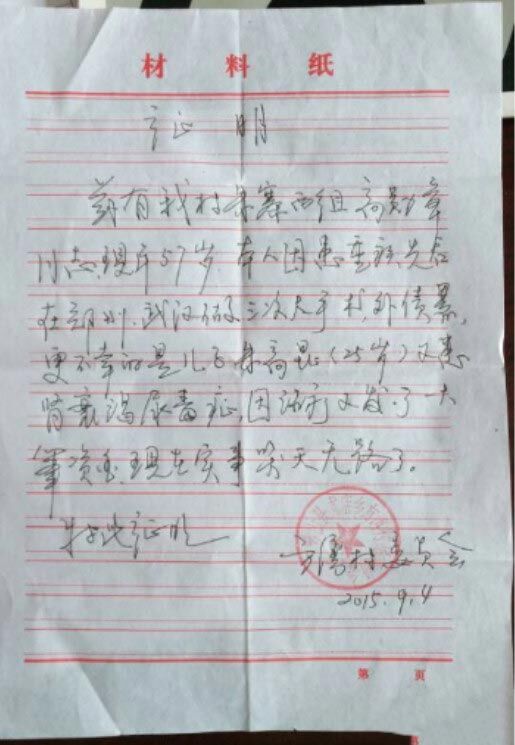 材 料 纸
证 明
兹有我村 寨西组 高 章
同志,现年57岁,本人因患重病,先后
在郑州、武汉做了三次大手术,外债累累,
更不幸的是儿子 高 (25岁)又患
肾衰竭尿毒症,因治疗又花了一大
笔资金,现在实事哭天无路了。
特此证明
村委员会
2015.9.4
第 页